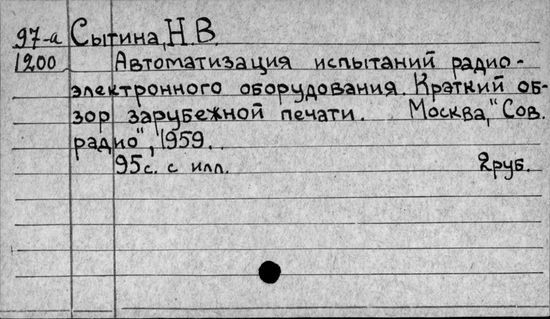 97-а Сытина, Н.В.
1200 Автоматизация испытаний радио-
электронного оборудования. Краткий об-
зор зарубежной печати. Москва, "Сов.
радио", 1959.
95с. с илл. 2руб.